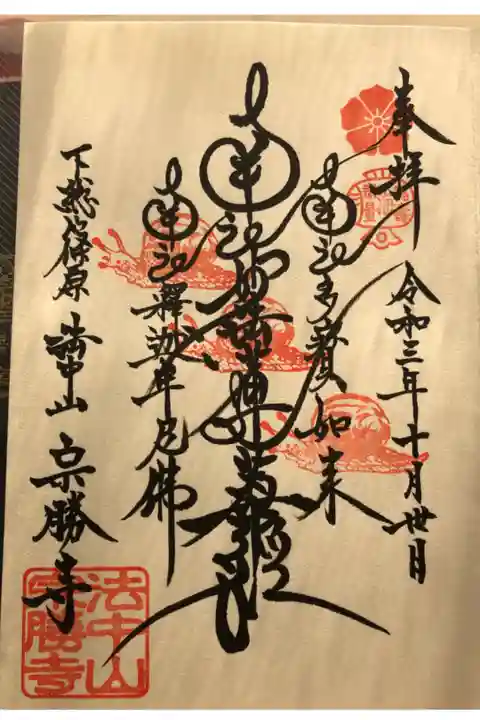 奉拝
令和三年十月丗日
南無多寳如来
南無妙法蓮華経
南無釋迦牟尼佛
下総篠原 法中山 宗勝寺
法中山
宗勝寺